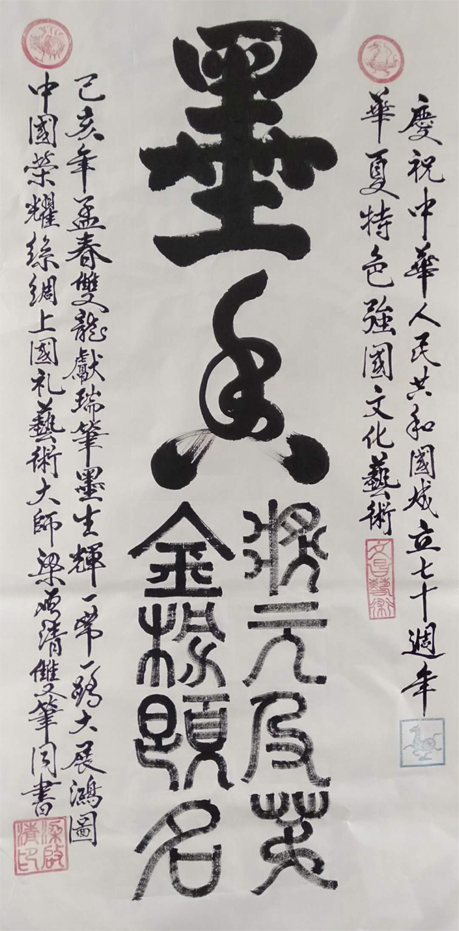 慶祝中華人民共和國成立七十週年
華夏特色強國文化藝術
墨香
狀元及第
金榜題名
己亥年孟春雙龍獻瑞筆墨生輝一帶一路大展鴻圖
中國榮耀絲綢上國礼藝術大師梁啟清雙筆同書
梁啟清印